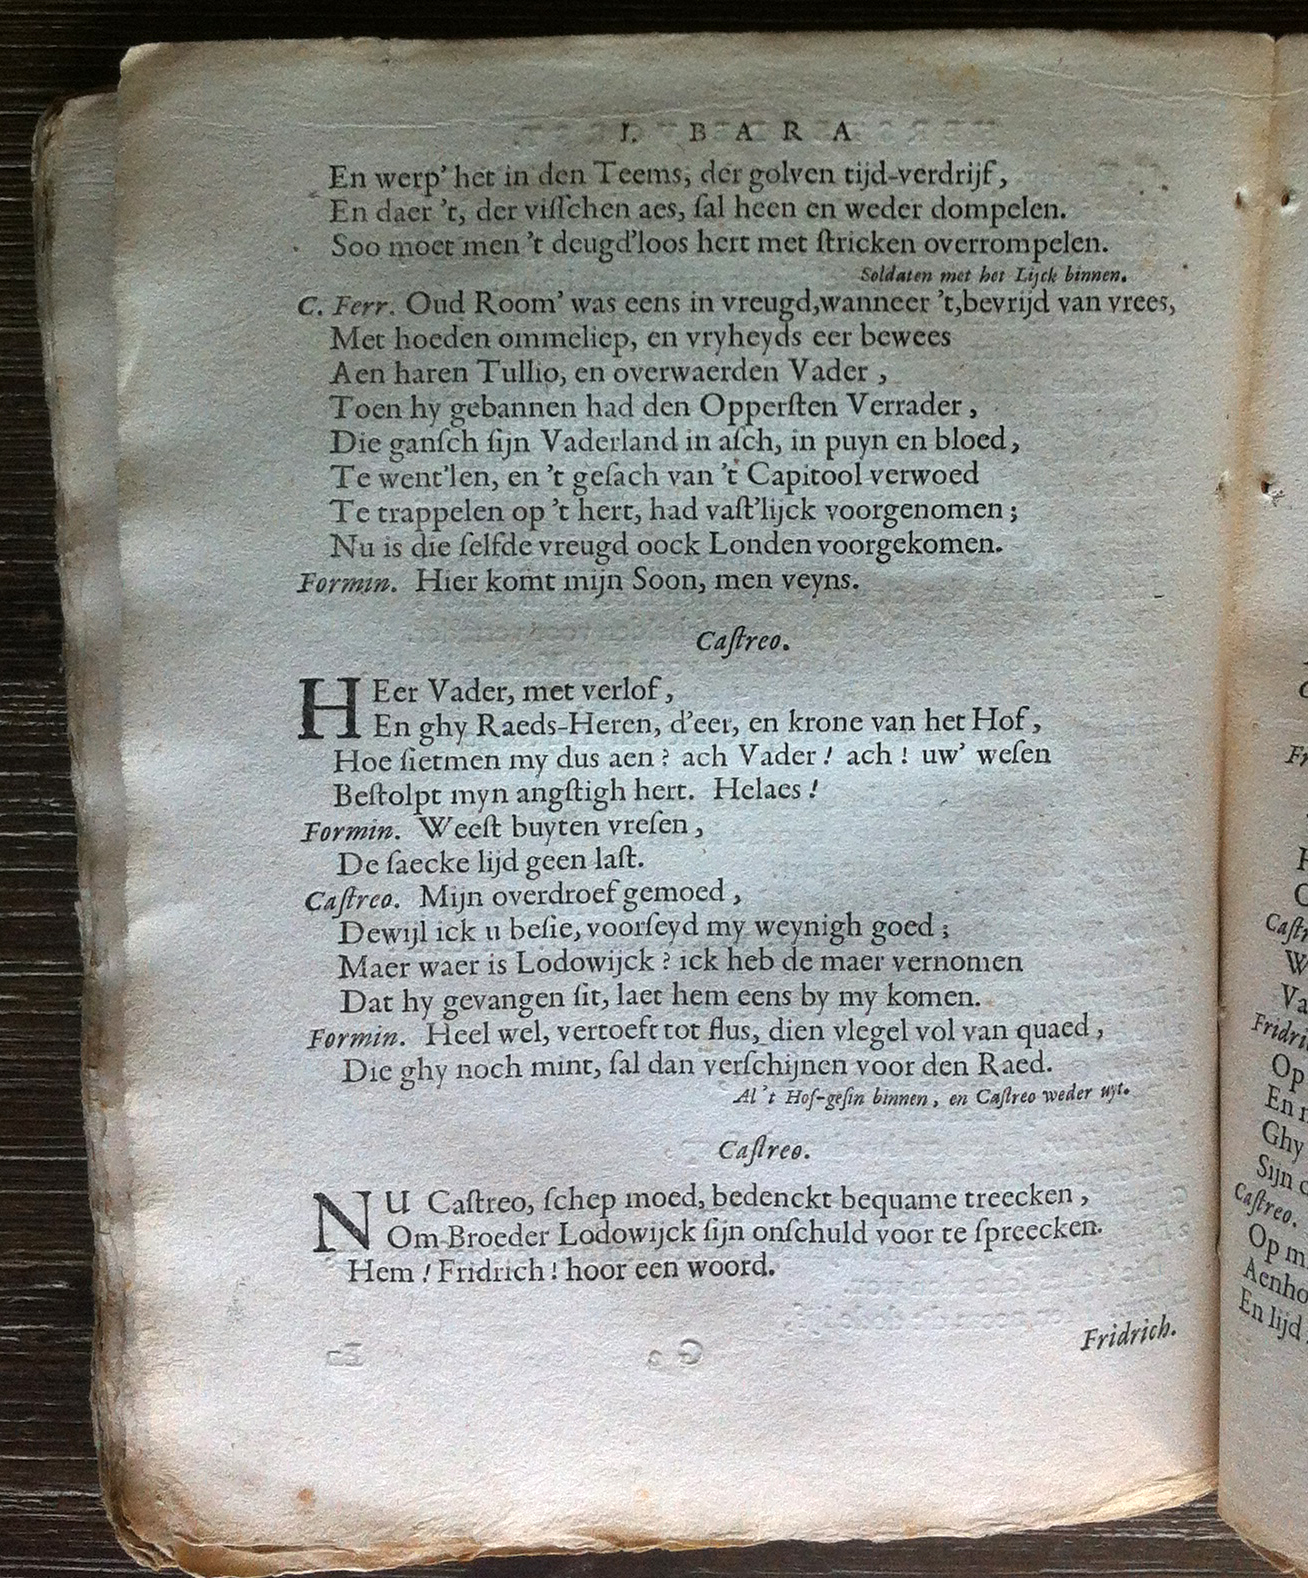 I. BARA
En werp' het in den Teems, der golven tijd-verdrijf,
En daer 't, der visſchen aes, ſal heen en weder dompelen.
Soo moet men 't deugd'loos hert met ſtricken overrompelen.
Soldaten met het Lijck binnen.
C. Ferr. Oud Room' was eens in vreugd, wanneer 't, bevrijd van vrees,
Met hoeden ommeliep, en vryheyds eer bewees
Aen haren Tullio, en overwaerden Vader,
Toen hy gebannen had den Opperſten Verrader,
Die ganſch ſijn Vaderland in aſch, in puyn en bloed,
Te went'len, en 't geſach van 't Capitool verwoed
Te trappelen op 't hert, had vaſt'lijck voorgenomen;
Nu is die ſelfde vreugd oock Londen voorgekomen.
Formin. Hier komt mijn Soon, men veyns.
Caſtreo.
HEer Vader, met verlof,
En ghy Raeds-Heren, d'eer, en krone van het Hof,
Hoe ſietmen my dus aen? ach Vader! ach! uw' weſen
Beſtolpt myn angſtigh hert. Helaes!
Formin. Weeſt buyten vreſen,
De ſaecke lijd geen laſt.
Caſtreo. Mijn overdroef gemoed,
Dewijl ick u beſie, voorſeyd my weynigh goed;
Maer waer is Lodowijck? ick heb de maer vernomen
Dat hy gevangen ſit, laet hem eens by my komen.
Formin. Heel wel, vertoeft tot flus, dien vlegel vol van quaed,
Die ghy noch mint, ſal dan verſchijnen voor den Raed.
Al 't Hof-geſin binnen, en Caſtreo weder uyt.
Caſtreo.
NU Caſtreo, ſchep moed, bedenckt bequame treecken,
Om Broeder Lodowijck ſijn onſchuld voor te ſpreecken.
Hem! Fridrich! hoor een woord.
Fridrich.
Caſtr
Fridri
Op
Ghy
Sijn
Caſtreo.
Op m
Aenho
En lijd